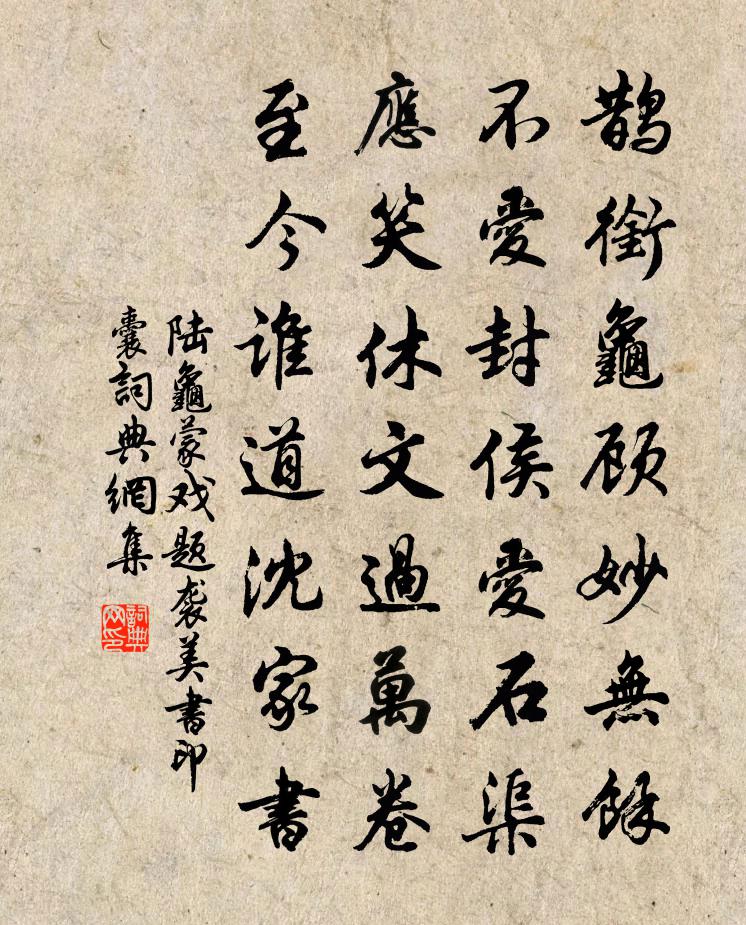 鵲銜龜顧妙無餘
不愛封侯愛石渠
應笑休文過萬卷
至今誰道沈家書
陆龜蒙戏題袭美書印
囊詞典網集
詞典网印